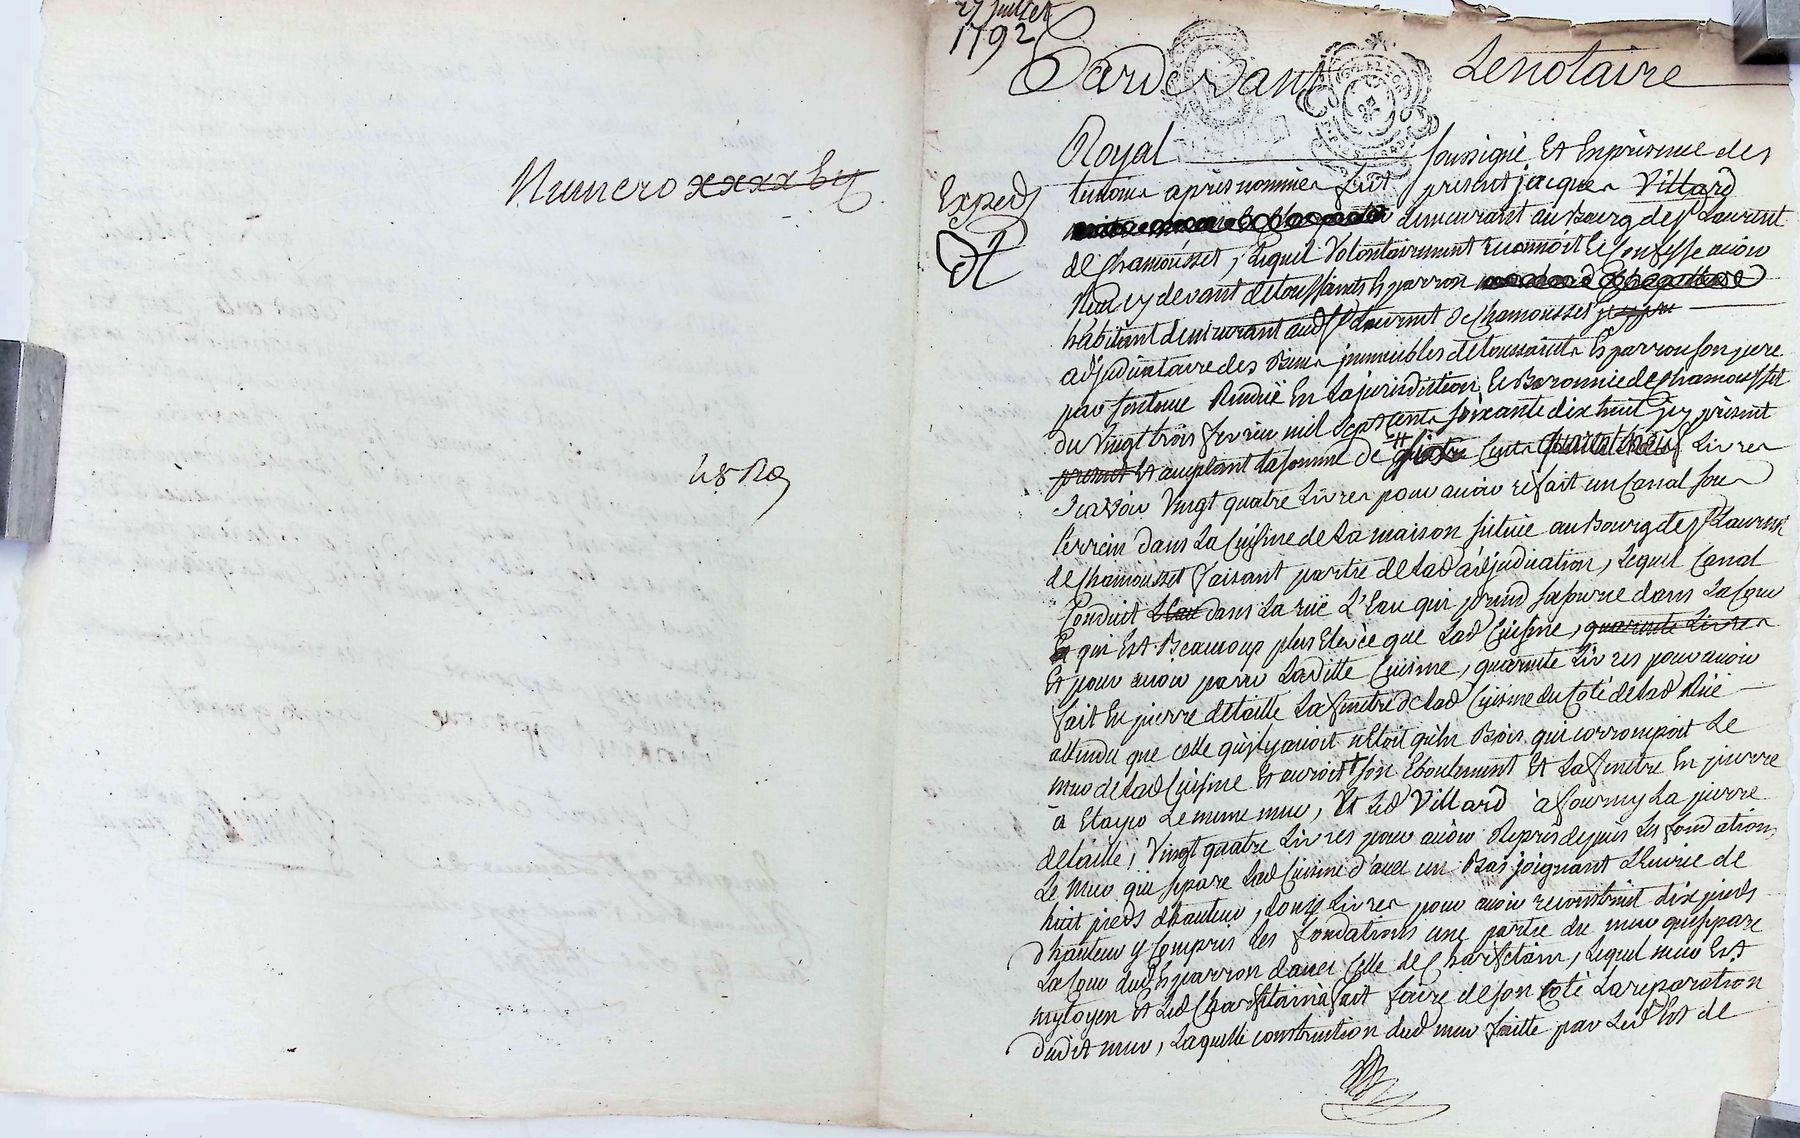 Numero xxxx by
48 Ro
27 juillet
1792
Pardevant Le notaire
Royal soussigné Et En présence des
Exped
temoins après nommés fut présent jacques Villard
demeurant au Bourg de St Laurent
de Chamousset, Lequel Volontairement reconnoit et Confesse avoir
Reçu cy devant de toussaints Esparron
habitant demeurant audt St Laurent de Chamousset
adjudicataire des Biens immeubles de toussaints Esparron son père
par sentence Rendüe En La jurisdiction et Baronnie de Chamousset
du Vingt trois fevrier mil Sept Cents soixante dix huit icy présent
present Et acceptant La somme de Cents Livres
Scavoir Vingt quatre Livres pour avoir refait un Canal sous
terrein dans La Cuisine de La maison située au Bourg de St Laurent
de Chamousset faisant partie de Lad adjudication, Lequel Canal
Conduit L'eau dans La rüe L'Eau qui prend sa source dans La Cour
qui Est Beaucoup plus Elevée que Lad Cuisine, quarante Livres
Et pour avoir pavé Laditte Cuisine, quarante Livres pour avoir
fait En pierre de taille La fenêtre de Lad Cuisine du Coté de Lad Rüe
attendu que celle qu'il y avoit n'etoit qu'En Bois qui corrompoit Le
mur de Lad Cuisine Et son Eboulement Et La fenêtre En pierre
à Etayé Le même mur, Et Led Villard à fourny La pierre
de taille, Vingt quatre Livres pour avoir Repris depuis Les fondations
Le mur qui sépare Lad Cuisine d'avec un Bas joignant L'Ecurie de
huit pieds d'hauteur, douze Livres pour avoir reconstruit dix pieds
d'hauteur y Compris Les fondations une partie du mur qui sépare
La Cour dud Esparron d'avec Celle de Charfetain, Lequel mur Est
mytoyen Et Led Charfetain à fait faire de son Coté La reparation
dudit mur, Laquelle construction dud mur faitte par Led Est de